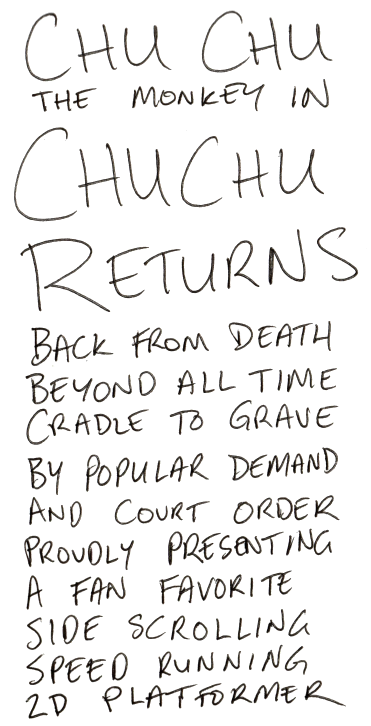 CHU CHU
THE MONKEY IN
CHUCHU
RETURNS
BACK FROM DEATH
BEYOND ALL TIME
CRADLE TO GRAVE
BY POPULAR DEMAND
AND COURT ORDER
PROUDLY PRESENTING
A FAN FAVORITE
SIDE SCROLLING
SPEED RUNNING
2D PLATFORMER